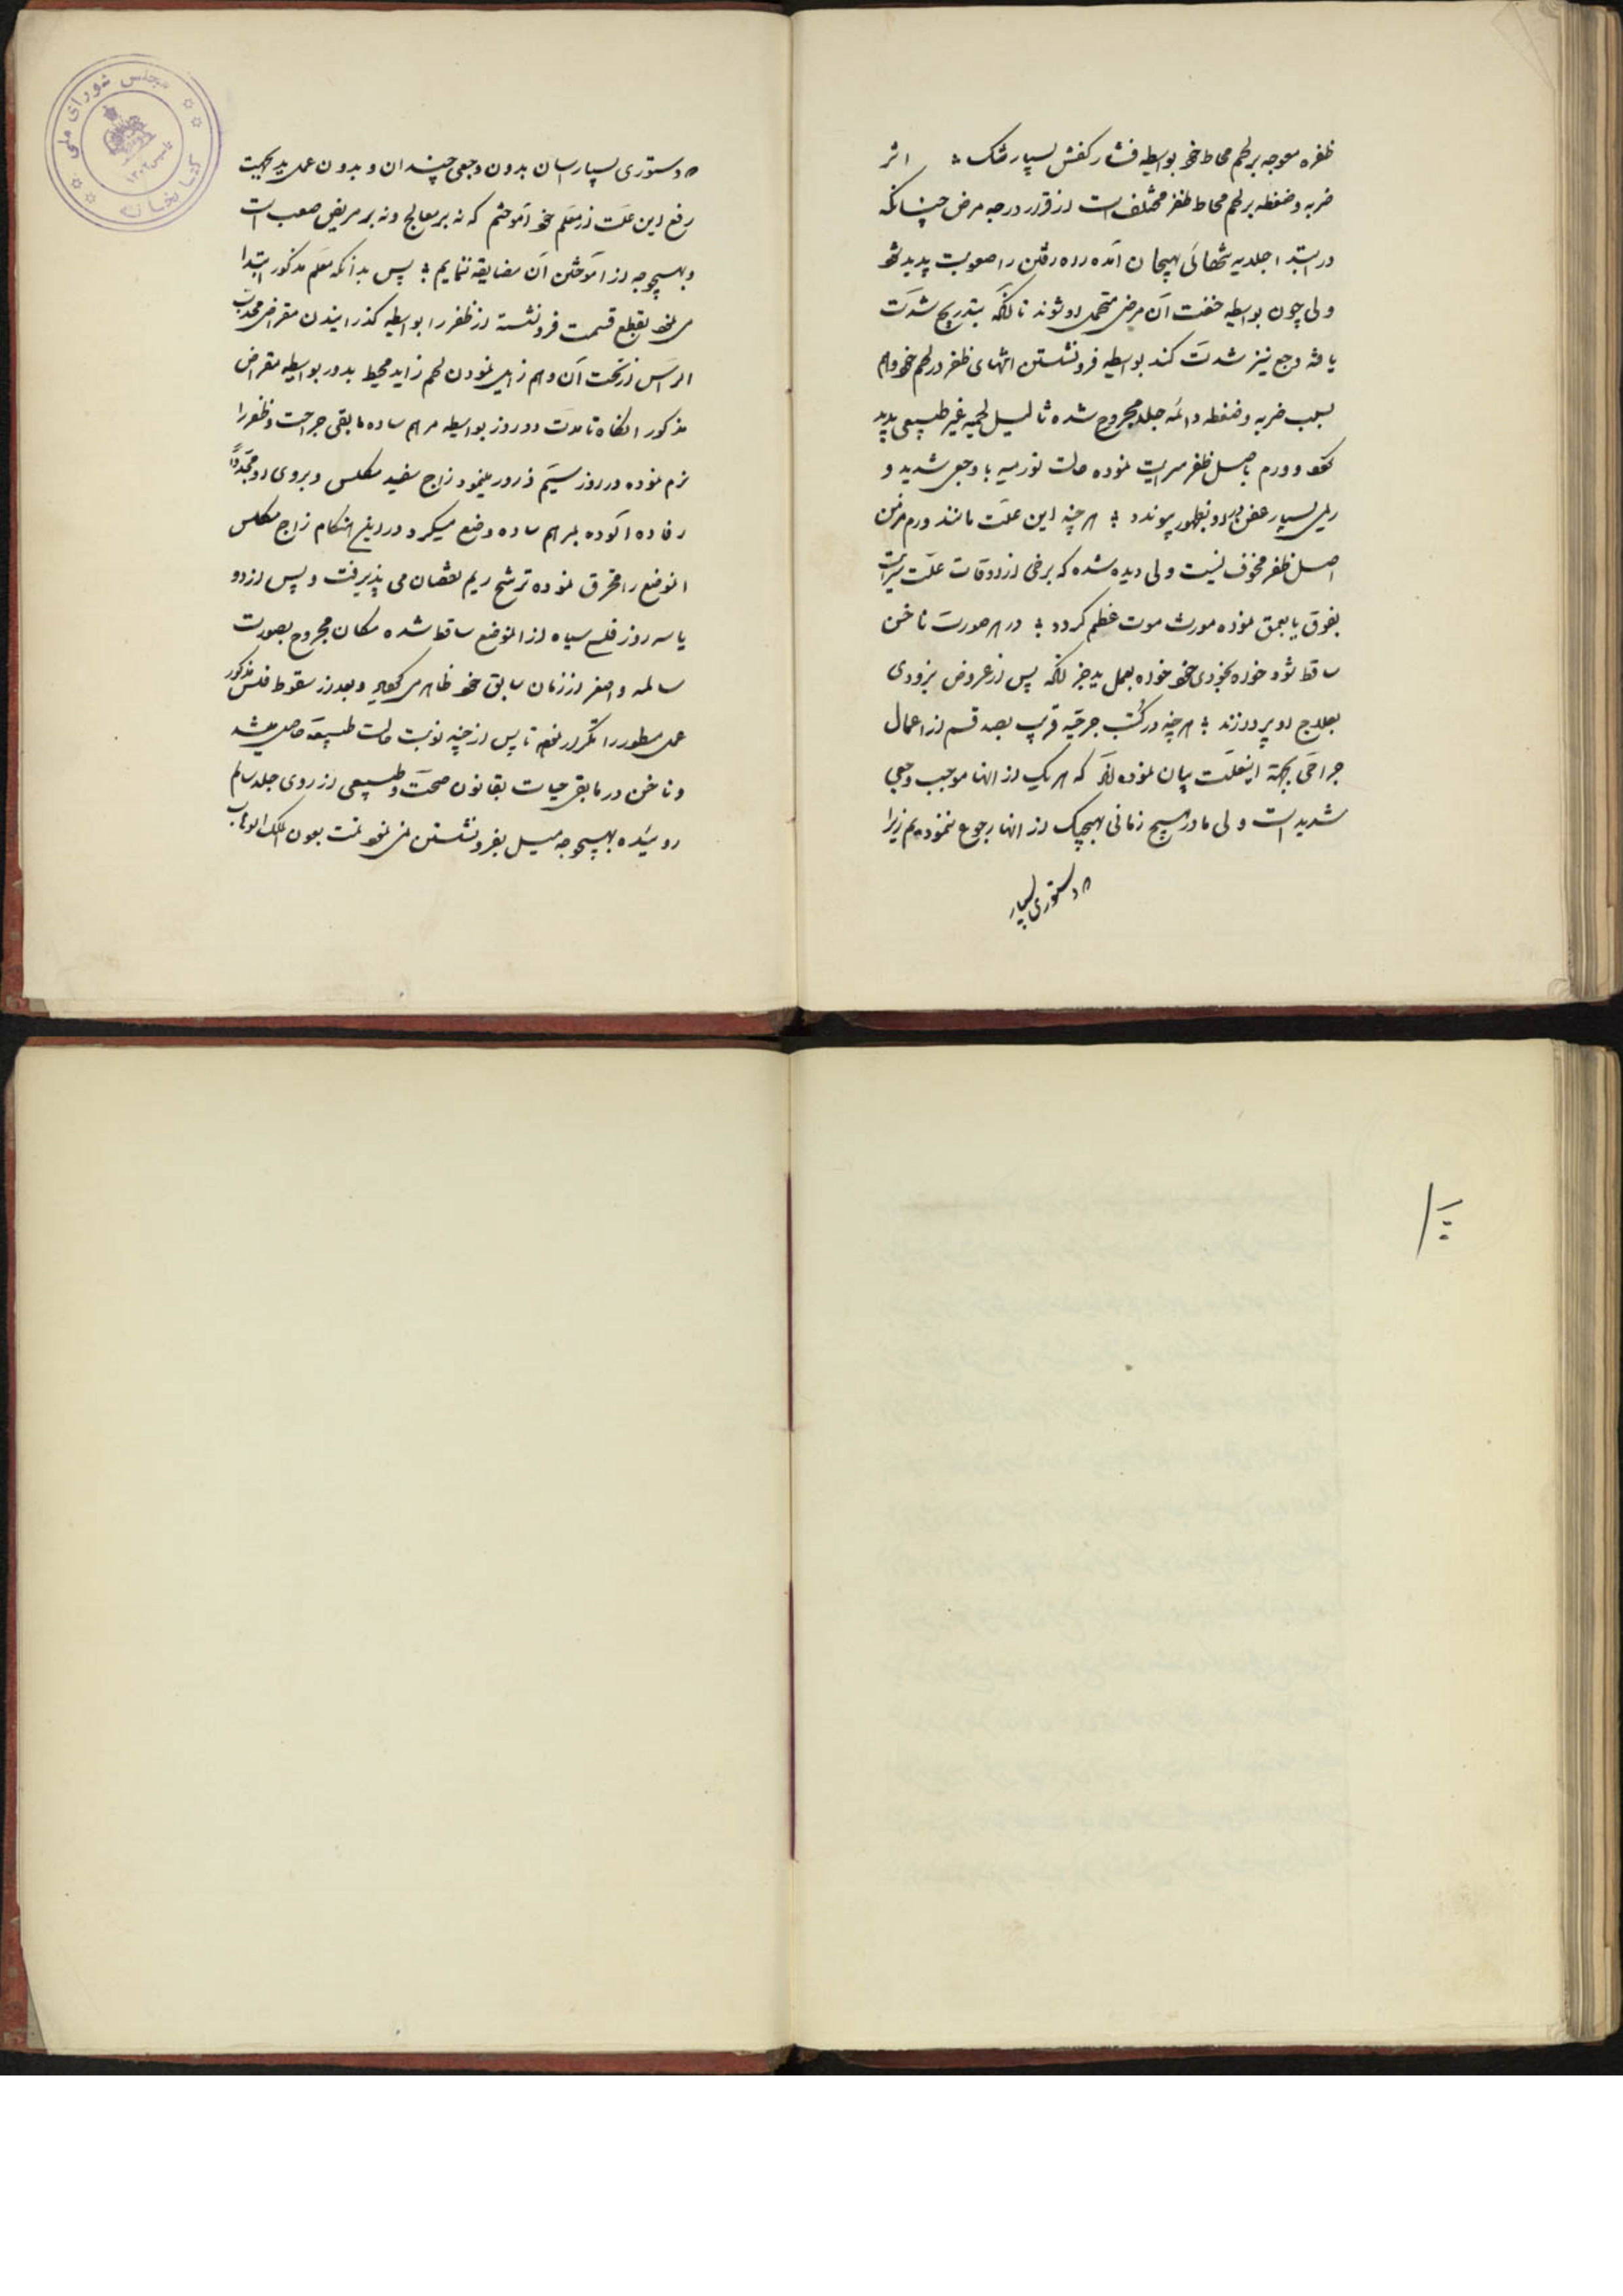 ظفره معوجه بر لحم محاط خود بواسطه فشار کفش بسیار تنگ ؛ اثر
ضربه و ضغطه بر لحم محاط ظفر مختلف است از قرار درجه مرض چنانکه
در ابتدا جلد به تنهائی بهیجان آمده راه رفتن را صعوبت پدید شود
ولی چون بواسطه خفت آن مرضی متحمل او شوند تا آنکه بتدریج شدت
یافته وجع نیز شدت کند بواسطه فرو نشستن انتهای ظفر در لحم خود و هم
بسبب ضربه و ضغطه دائمه جلد مجروح شده ثالیل لحمیه غیر طبیعی پدید
و ورم باصل ظفر سرایت نموده حالت تورمیه با وجعی شدید و
ریمی بسیار عفن در او بظهور پیوندد ؛ هر چند این علت مانند ورم مزمن
اصل ظفر مخوف نیست ولی دیده شده که برخی از اوقات علت سرایت
بفوق یا بعمق نموده مورث موت عظم گردد ؛ در هر صورت ناخن
ساقط شود خواه بخودی خود خواه بعمل ید جز آنکه پس از عروض بزودی
بعلاج او پردازند ؛ هر چند در کتب جراحیه قریب بصد قسم از اعمال
جراحی بجهة اینعلت بیان نموده‌اند که هر یک از آنها موجب وجعی
شدید است ولی ما در هیچ زمانی بهیچیک از آنها رجوع ننموده‌یم زیرا
که دستوری بسیار
که دستوری بسیار آسان بدون وجعی چندان و بدون عمل ید بجهت
رفع این علت از معلم خود آموختم که نه بر معالج و نه بر مریض صعب است
و بهیچوجه از آموختن آن مضایقه ننمایم ؛ پس بدانکه معلم مذکور ابتدا
می‌نمود بقطع قسمت فرو نشسته از ظفر را بواسطه گذرانیدن مقراض محدب
الرأس از تحت آن و هم زایل نمودن لحم زاید محیط بدور بواسطه مقراض
مذکور آنگاه تا مدت دو روز بواسطه مرهم ساده مابقی جراحت و ظفر را
نرم نموده در روز سیم ذرور مینمود زاج سفید مکلس و بروی او مجدداً
رفاده آلوده بمرهم ساده وضع میکرد در این هنگام زاج مکلس
انموضع را محترق نموده ترشح ریم نقصان می پذیرفت و پس از دو
یا سه روز فلسی سیاه از انموضع ساقط شده مکان مجروح بصورت
سالمه و اصغر از زمان سابق خود ظاهر می و بعد از سقوط فلس مذکور
عمل مسطور را تکرار نموده تا پس از چند نوبت حالت طبیعیه حاصل میشد
و ناخن در مابقی حیات بقانون صحت و طبیعی از روی جلد سالم
روئیده بهیچوجه میل بفرو نشستن نمی‌نمود تمت بعون الملک الوهاب
مجلس شورای ملی
کتابخانه
تاسیس ۱۳۰۲